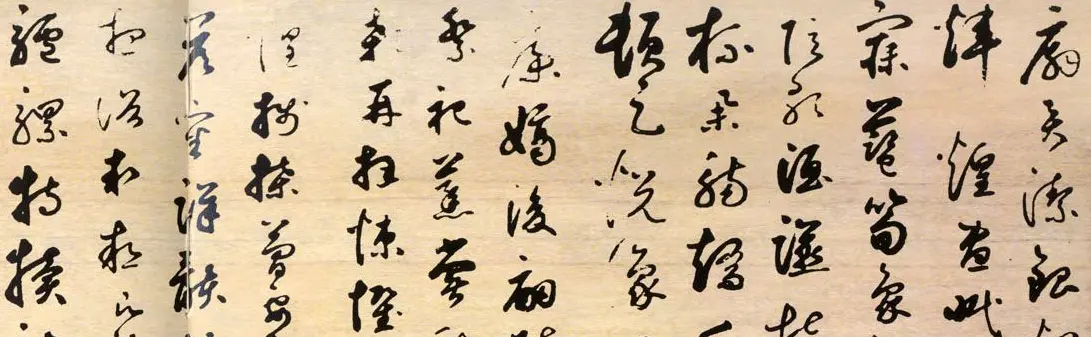 扇員潔銀
煒煌晝眠
寐藍筍象
弦歌酒讌
杯舉觴矯
頓足悅豫
康嫡後嗣
祭祀蒸嘗
顙再拜悚懼
惶牋牒簡要
答審詳骸
想浴執熱願
驢騾特犢